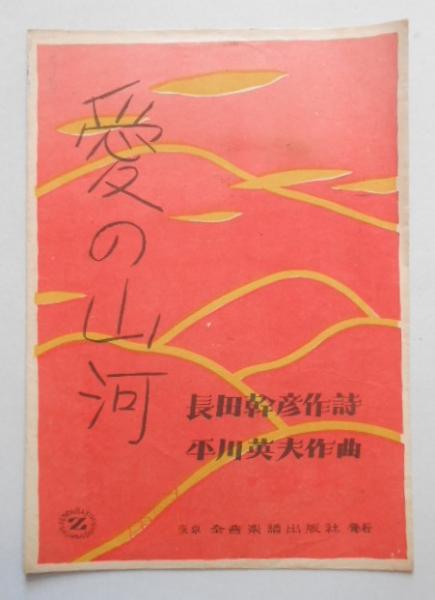 愛の山河
長田幹彦作詩
平川英夫作曲
東京 全音楽譜出版社 発行
Z